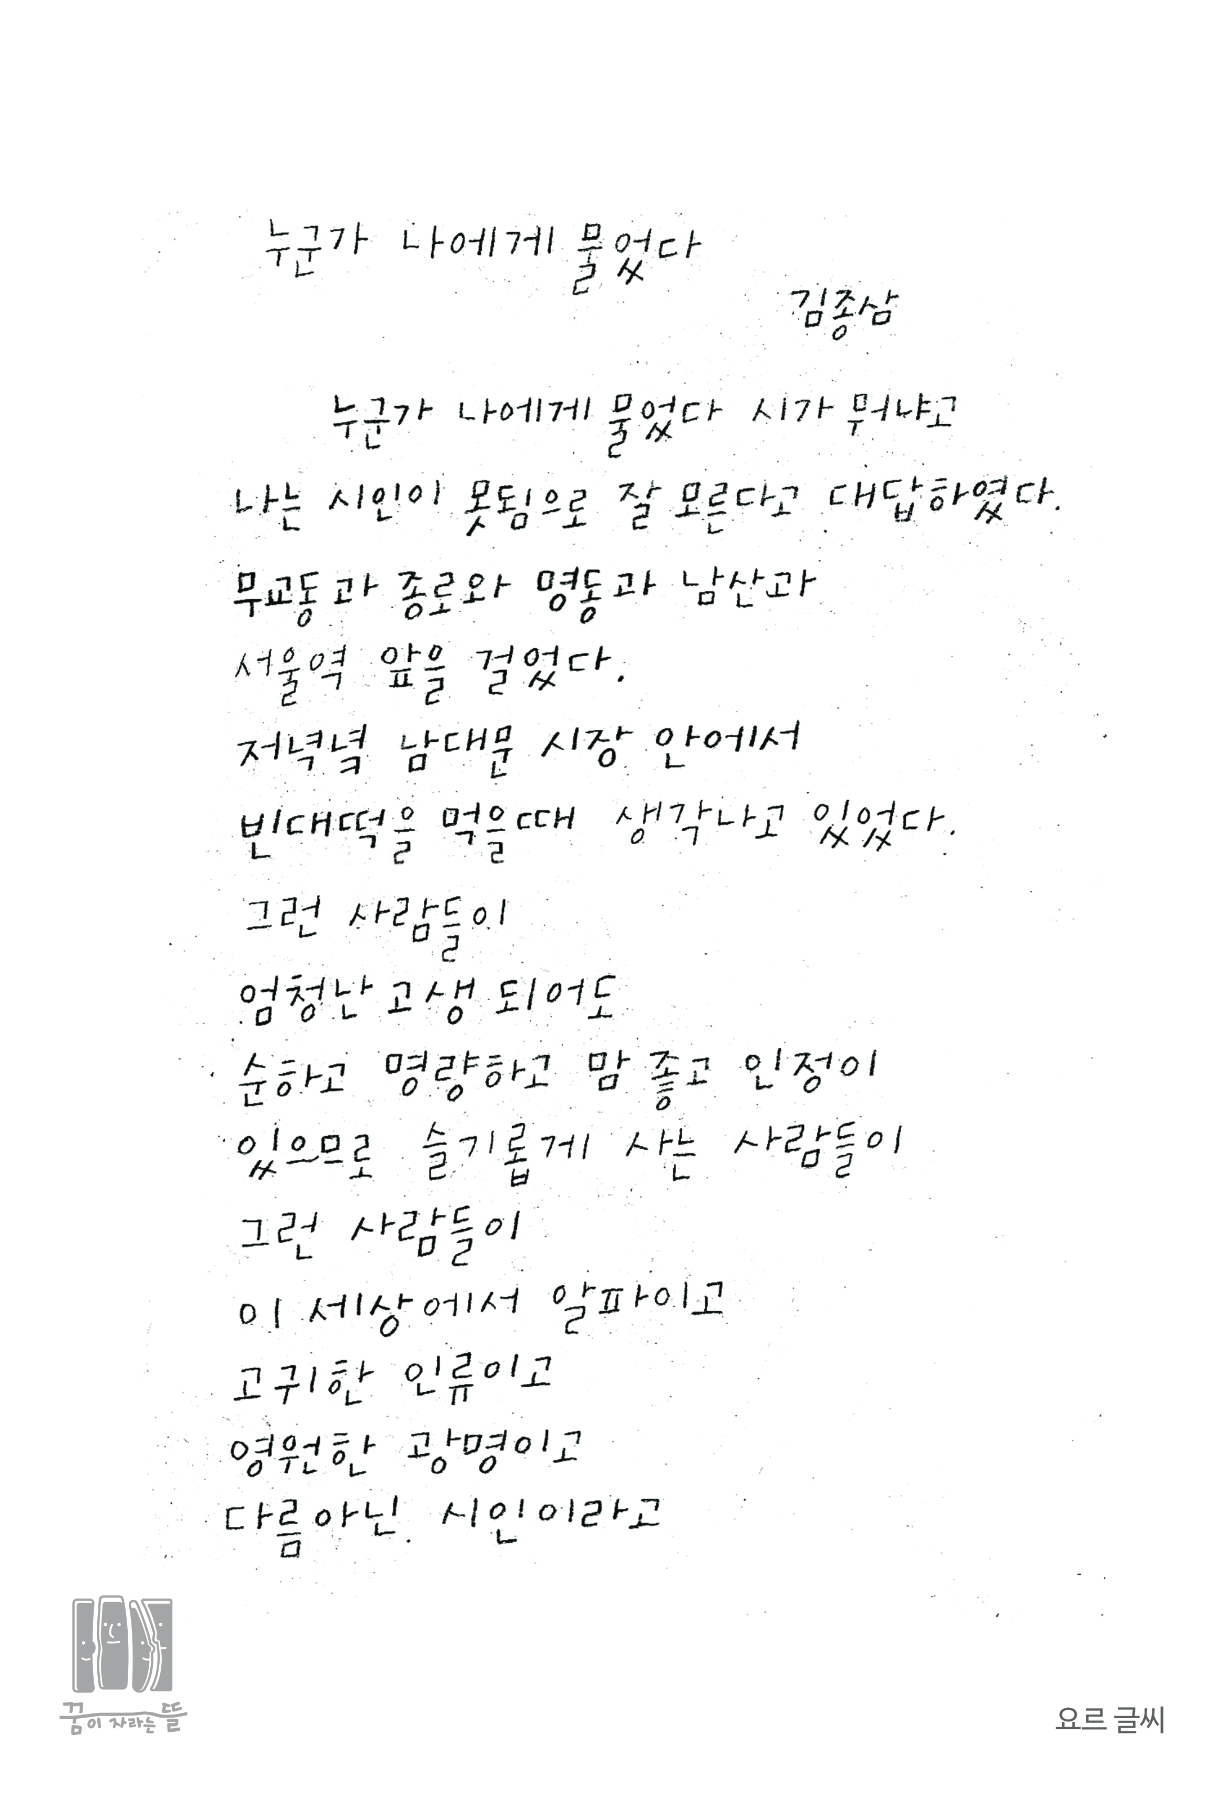 누군가 나에게 물었다
김종삼
누군가 나에게 물었다 시가 뭐냐고
나는 시인이 못됨으로 잘 모른다고 대답하였다.
무교동과 종로와 명동과 남산과
서울역 앞을 걸었다.
저녁녘 남대문 시장 안에서
빈대떡을 먹을때 생각나고 있었다.
그런 사람들이
엄청난 고생 되어도
순하고 명량하고 맘 좋고 인정이
있으므로 슬기롭게 사는 사람들이
그런 사람들이
이 세상에서 알파이고
고귀한 인류이고
영원한 광명이고
다름아닌 시인이라고
꿈이 자라는 뜰
요르 글씨